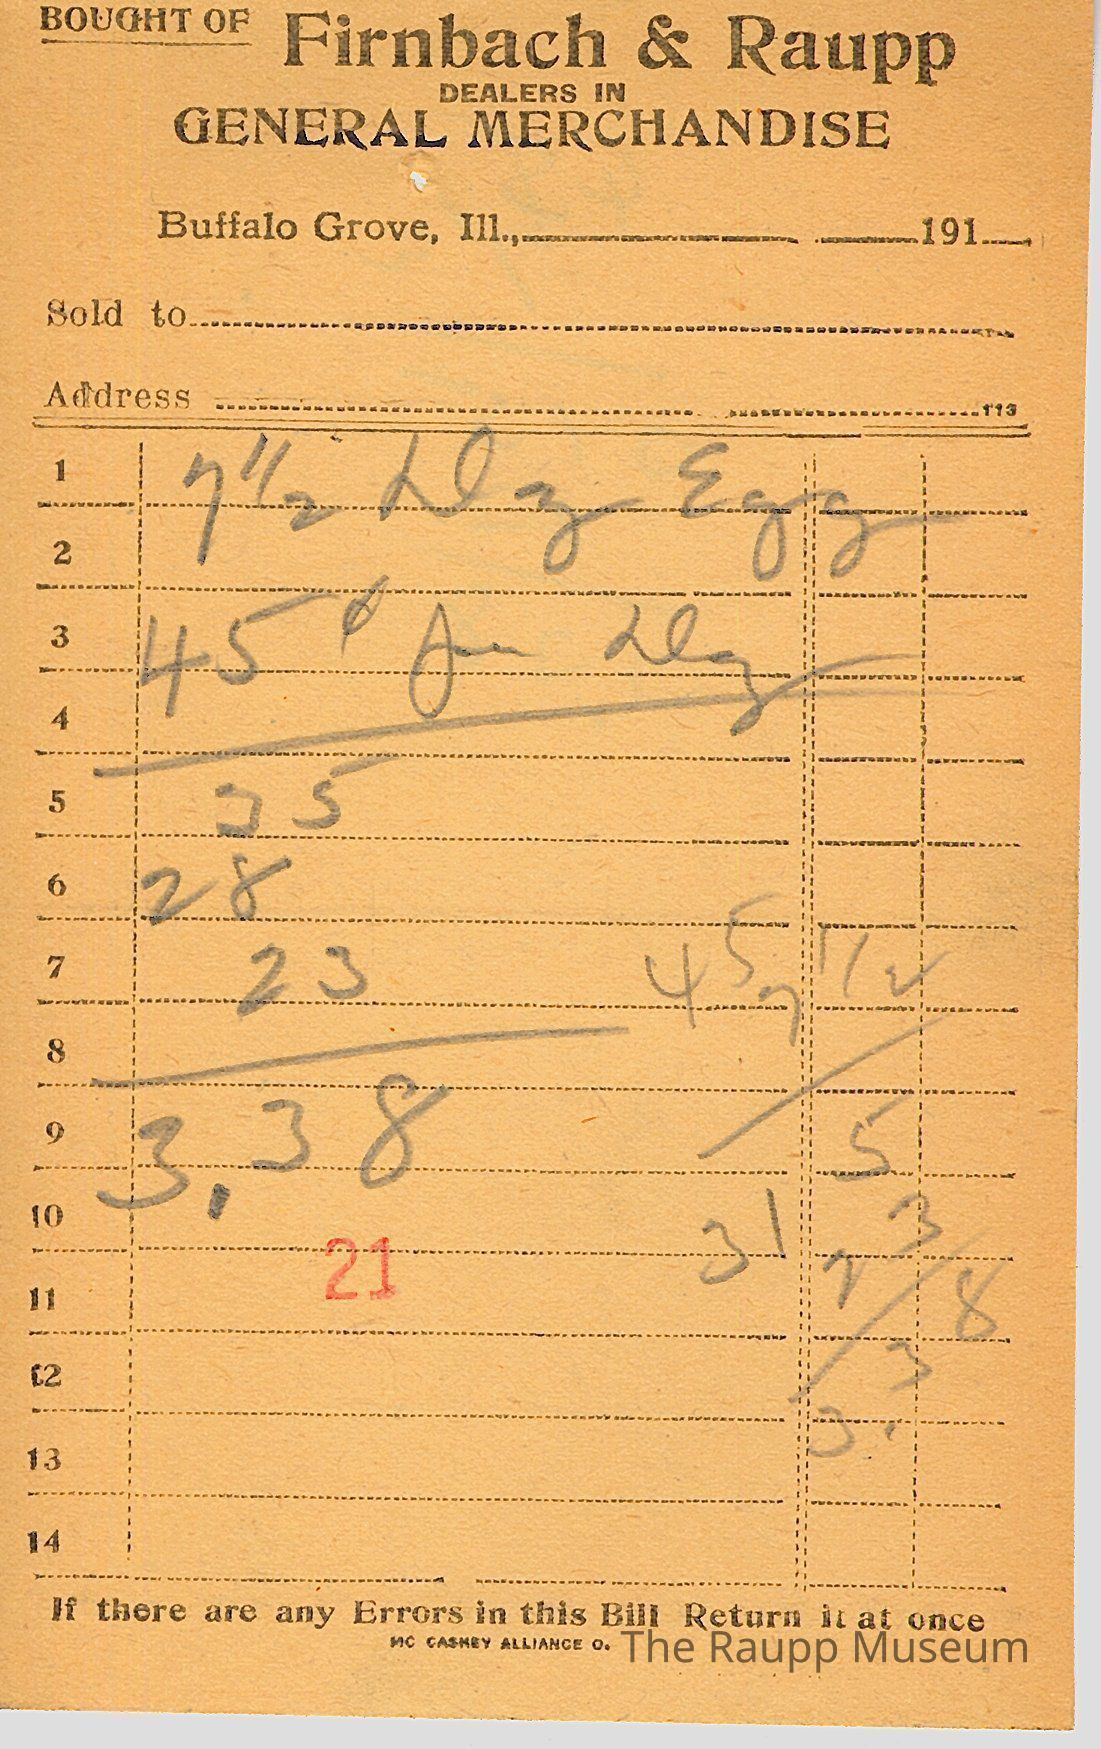 BOUGHT OF Firnbach & Raupp
DEALERS IN
GENERAL MERCHANDISE
Buffalo Grove, Ill., 191
Sold to
Address 113
1 7 1/2 Dz Egg
2
3 45¢ per Dz
4
5 35
6 28
7 23 45 7 1/2
8
9 3,38 5
10 31 3
21
11 2 8
12 3
13 3.
14
If there are any Errors in this Bill Return it at once
MC CASKEY ALLIANCE O.
The Raupp Museum